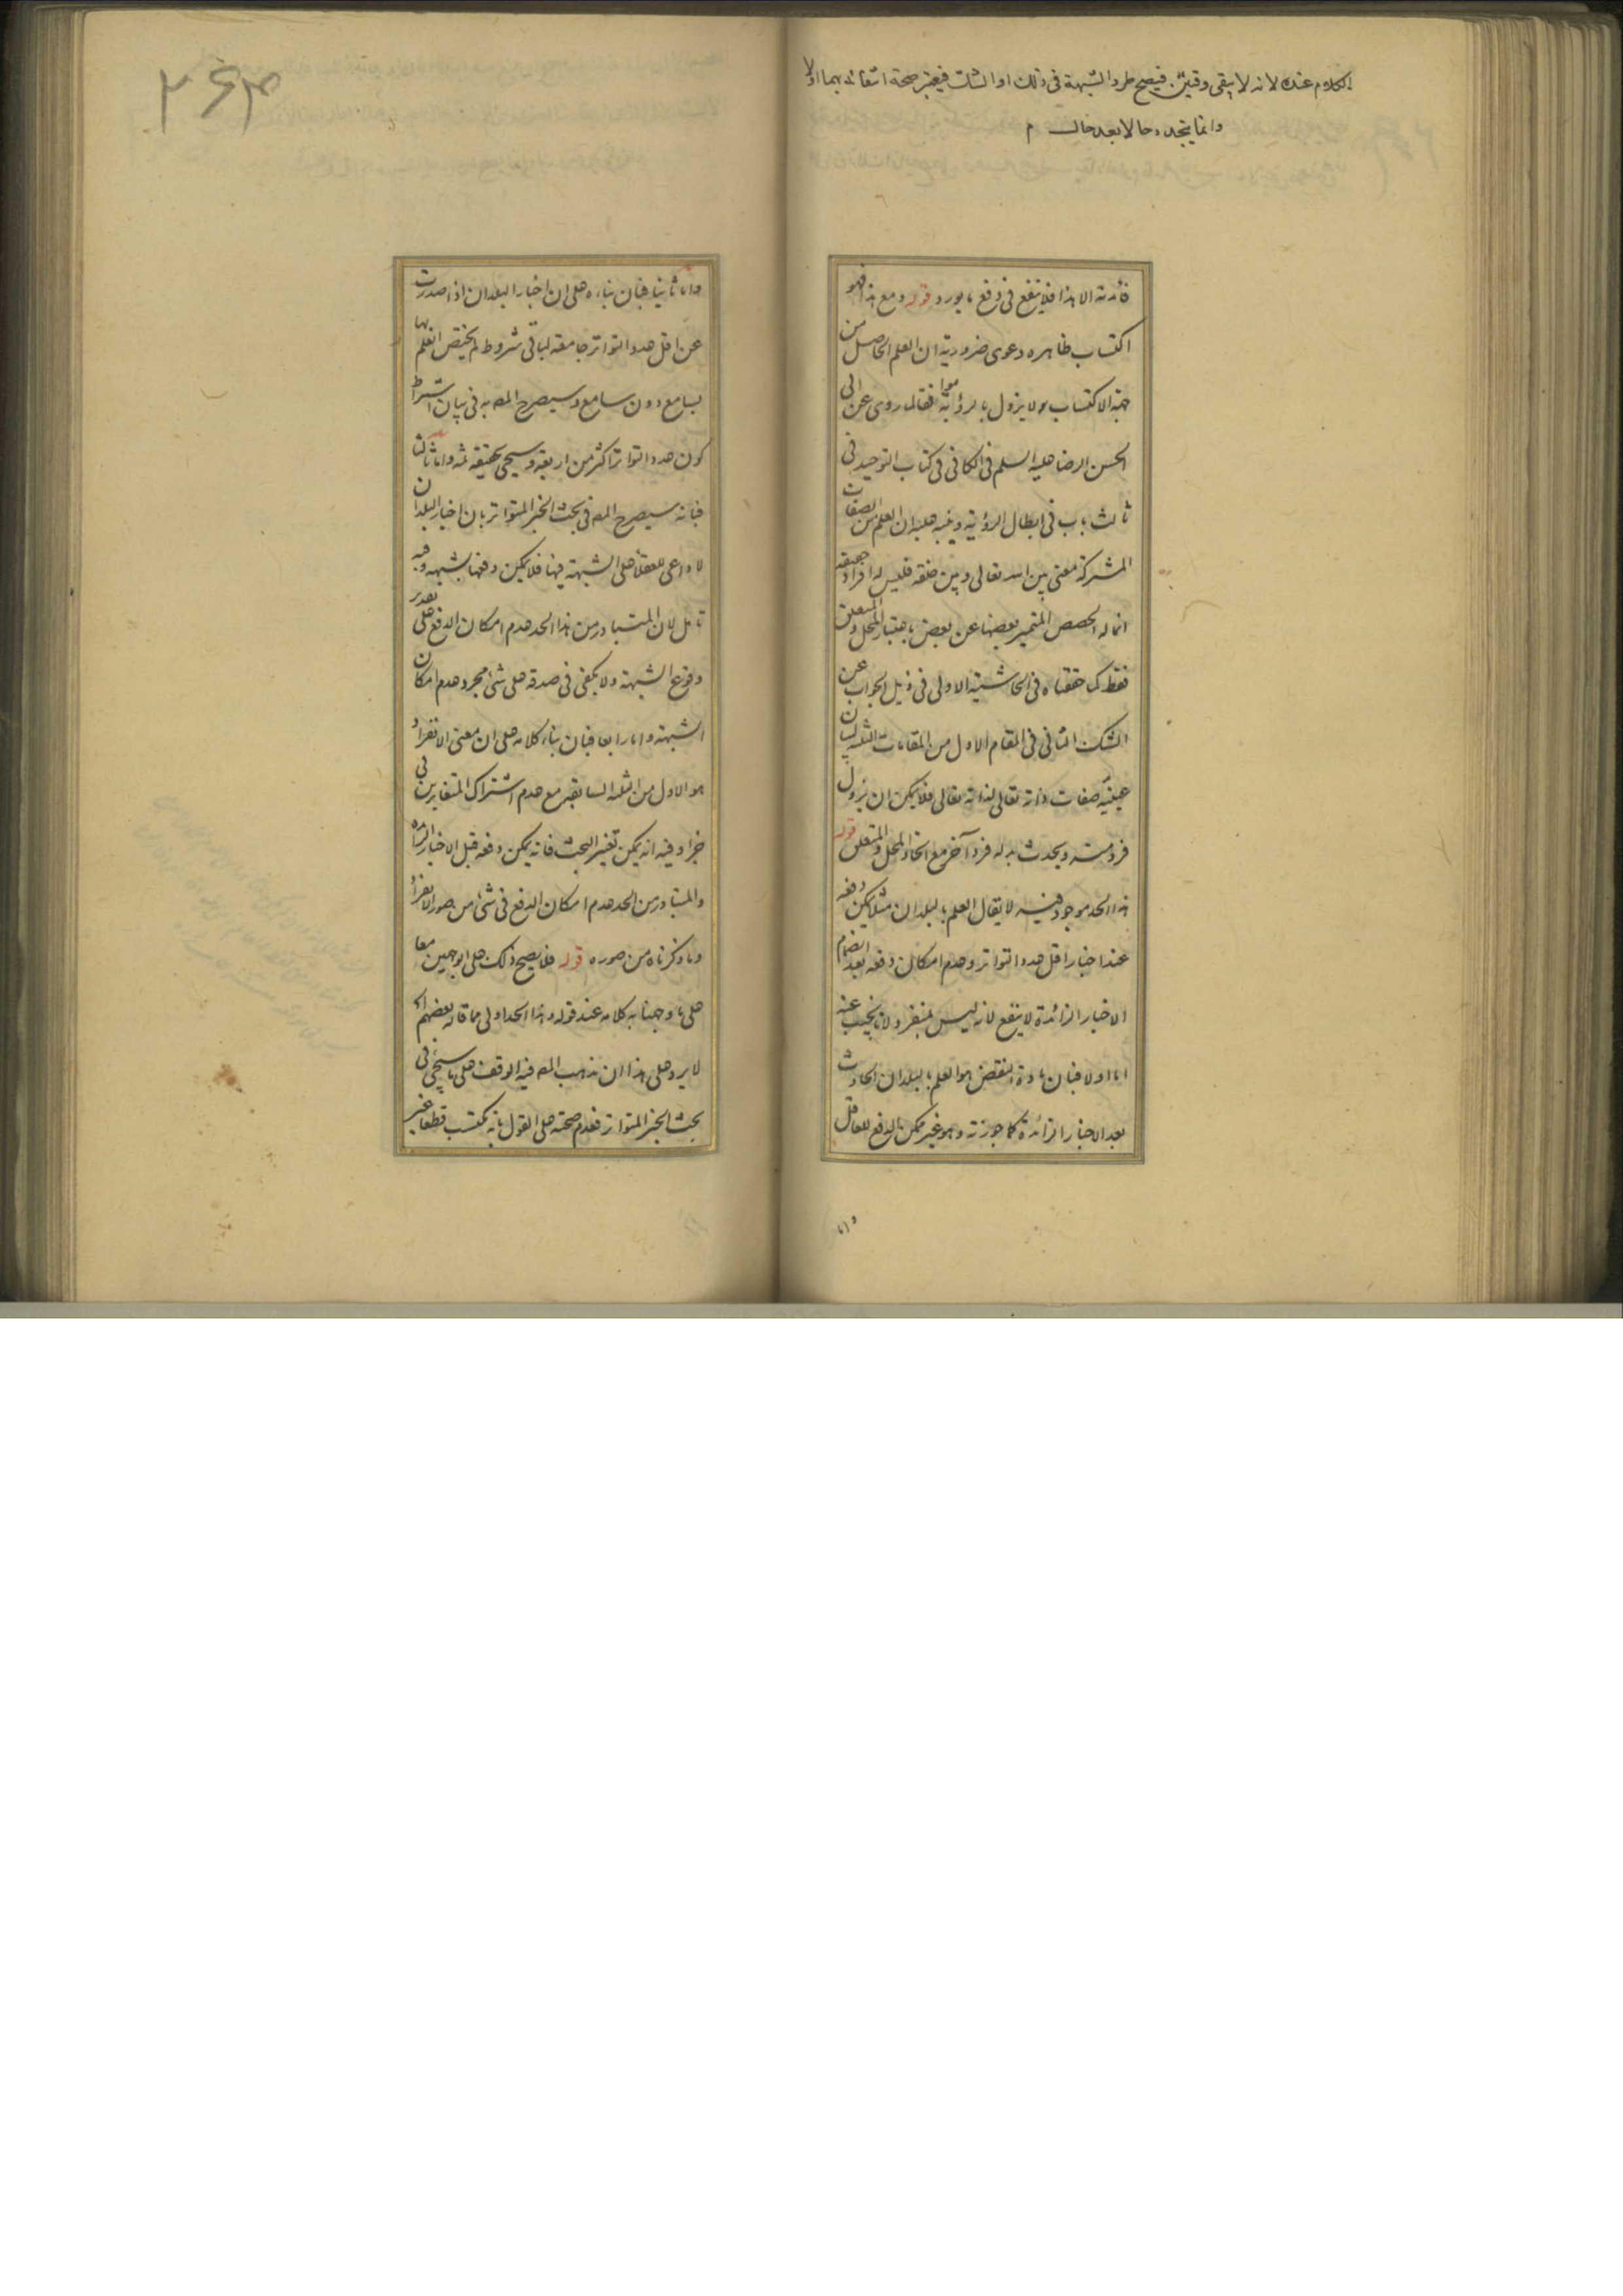 الكلام عنده لانه لا يبقى وقتين فيصح طرو الشبهة فى ذلك او الشك فيعتبر صحة انتفائه بهما اولا
وانما يتجدد حالا بعد حال م
فائدته الا هذا فلا ينفع فى دفع ما يورد قوله ومع هذا فهو
اكتساب ظاهره دعوى ضرورية ان العلم الحاصل من
جهة الاكتساب لا يزول بالرؤية موافقا لما روى عن ابى
الحسن الرضا عليه السلم فى الكافى فى كتاب التوحيد فى
ثالث باب فى ابطال الرؤية ونبه عليه ان العلم من الصفات
المشتركة معنى بين الله تعالى وبين خلقه فليس له افراد حقيقة
انما له الحصص المتميز بعضها عن بعض باعتبار المحل والمتعلق
فقط كما حققناه فى الحاشية الاولى فى ذيل الجواب عن
الشك الثانى فى المقام الاول من المقامات الثلثة لبيان
عينية صفات ذاته تعالى لذاته تعالى فلا يمكن ان يزول
فرد منه ويحدث بدله فرد آخر مع اتحاد المحل والمتعلق قوله
هذا الحد موجود فيه لا يقال العلم بالبلدان مثلا يمكن دفعه
عند اخبار اقل عدد التواتر وعدم امكان دفعه بعد انضمام
الاخبار الزائدة لا ينفع لانه ليس بمنفرد لانا نجيب عنه
اما اولا فبان مادة النقض هو العلم بالبلدان الحادث
بعد الاخبار الزائدة كما جوزته وهو غير ممكن الدفع للعاقل
واما
٢٤٣
واما ثانيا فبان بناءه على ان اخبار البلدان اذا صدرت
عن اقل عدد التواتر جامعة لباقى شروط لم يختص العلم بها
بسامع دون سامع وسيصرح المص به فى بيان اشتراط
كون عدد التواتر اكثر من اربعة وسيجئ تحقيقه ثمه واما ثالثا
فبانه سيصرح المص فى بحث الخبر المتواتر بان اخبار البلدان
لا داعى للعقلاء على الشبهة فيها فلا يمكن دفعها بشبهة وفيه
تامل لان المتبادر من هذا الحد عدم امكان الدفع على تقدير
وقوع الشبهة ولا يكفى فى صدقه على شئ مجرد عدم امكان
الشبهة واما رابعا فبان بناء كلامه على ان معنى الانفراد
هو الاول من الثلثة السابقة مع عدم اشتراك المتغايرين فى
خبر اد وفيه انه يمكن تغيير البحث فانه يمكن دفعه قبل الاخبار الزائدة
والمتبادر من الحد عدم امكان الدفع فى شئ من صور الانفراد
وما ذكرناه من صوره قوله فلا يصح ذلك على الوجهين معا
على ما وجهنا به كلامه عند قوله وهذا الحد اولى مما قاله بعضهم اه
لا يرد على هذا ان مذهب المص فيه الوقف على ما سيجئ فى
بحث الخبر المتواتر فعدم صحته على القول بانه مكتسب قطعا غير